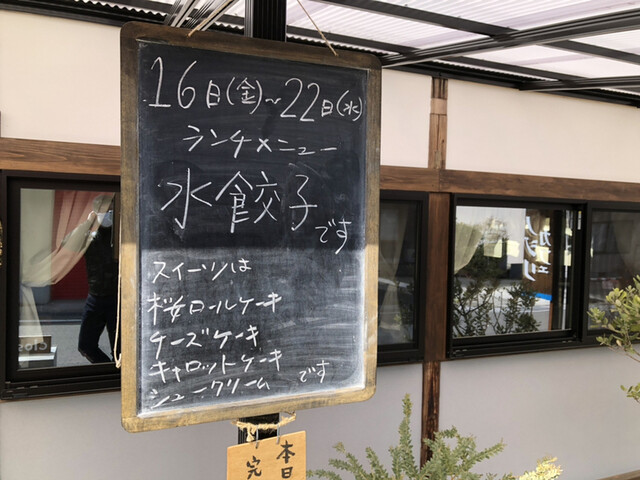 16日(金)~22日(水)
ランチメニュー
水餃子
です
スイーツは
桜ロールケーキ
チーズケーキ
キャロットケーキ
シュークリーム です
本日
完